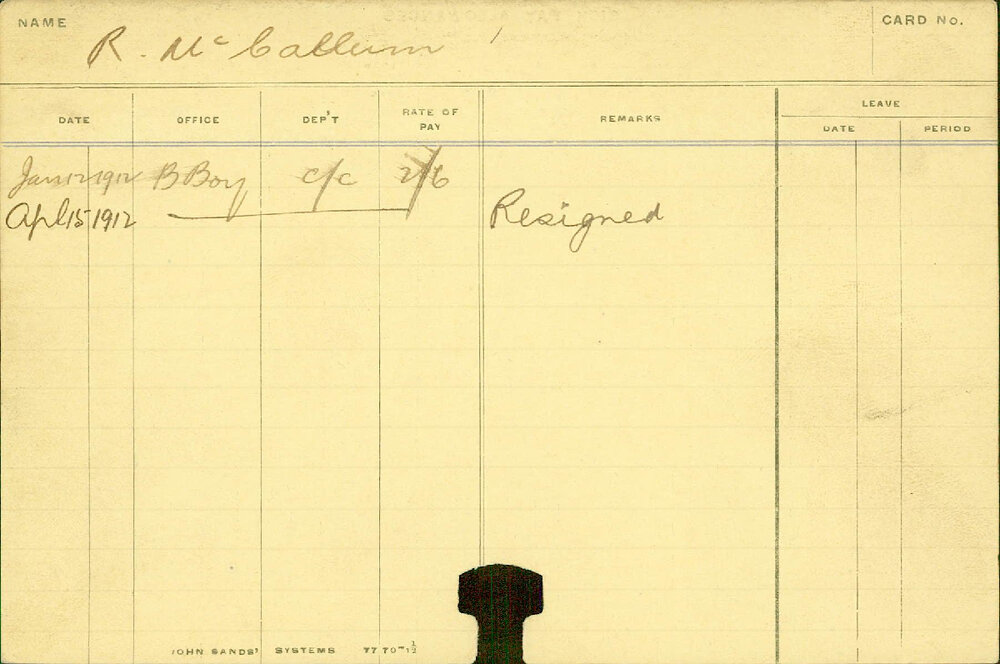 NAME
CARD No.
R. McCallum
DATE OFFICE DEP'T RATE OF PAY REMARKS LEAVE
DATE PERIOD
Jan 12 1912 B Boy c/c 2/6
Apl 15 1912 Resigned
JOHN SANDS' SYSTEMS 77 70-1½